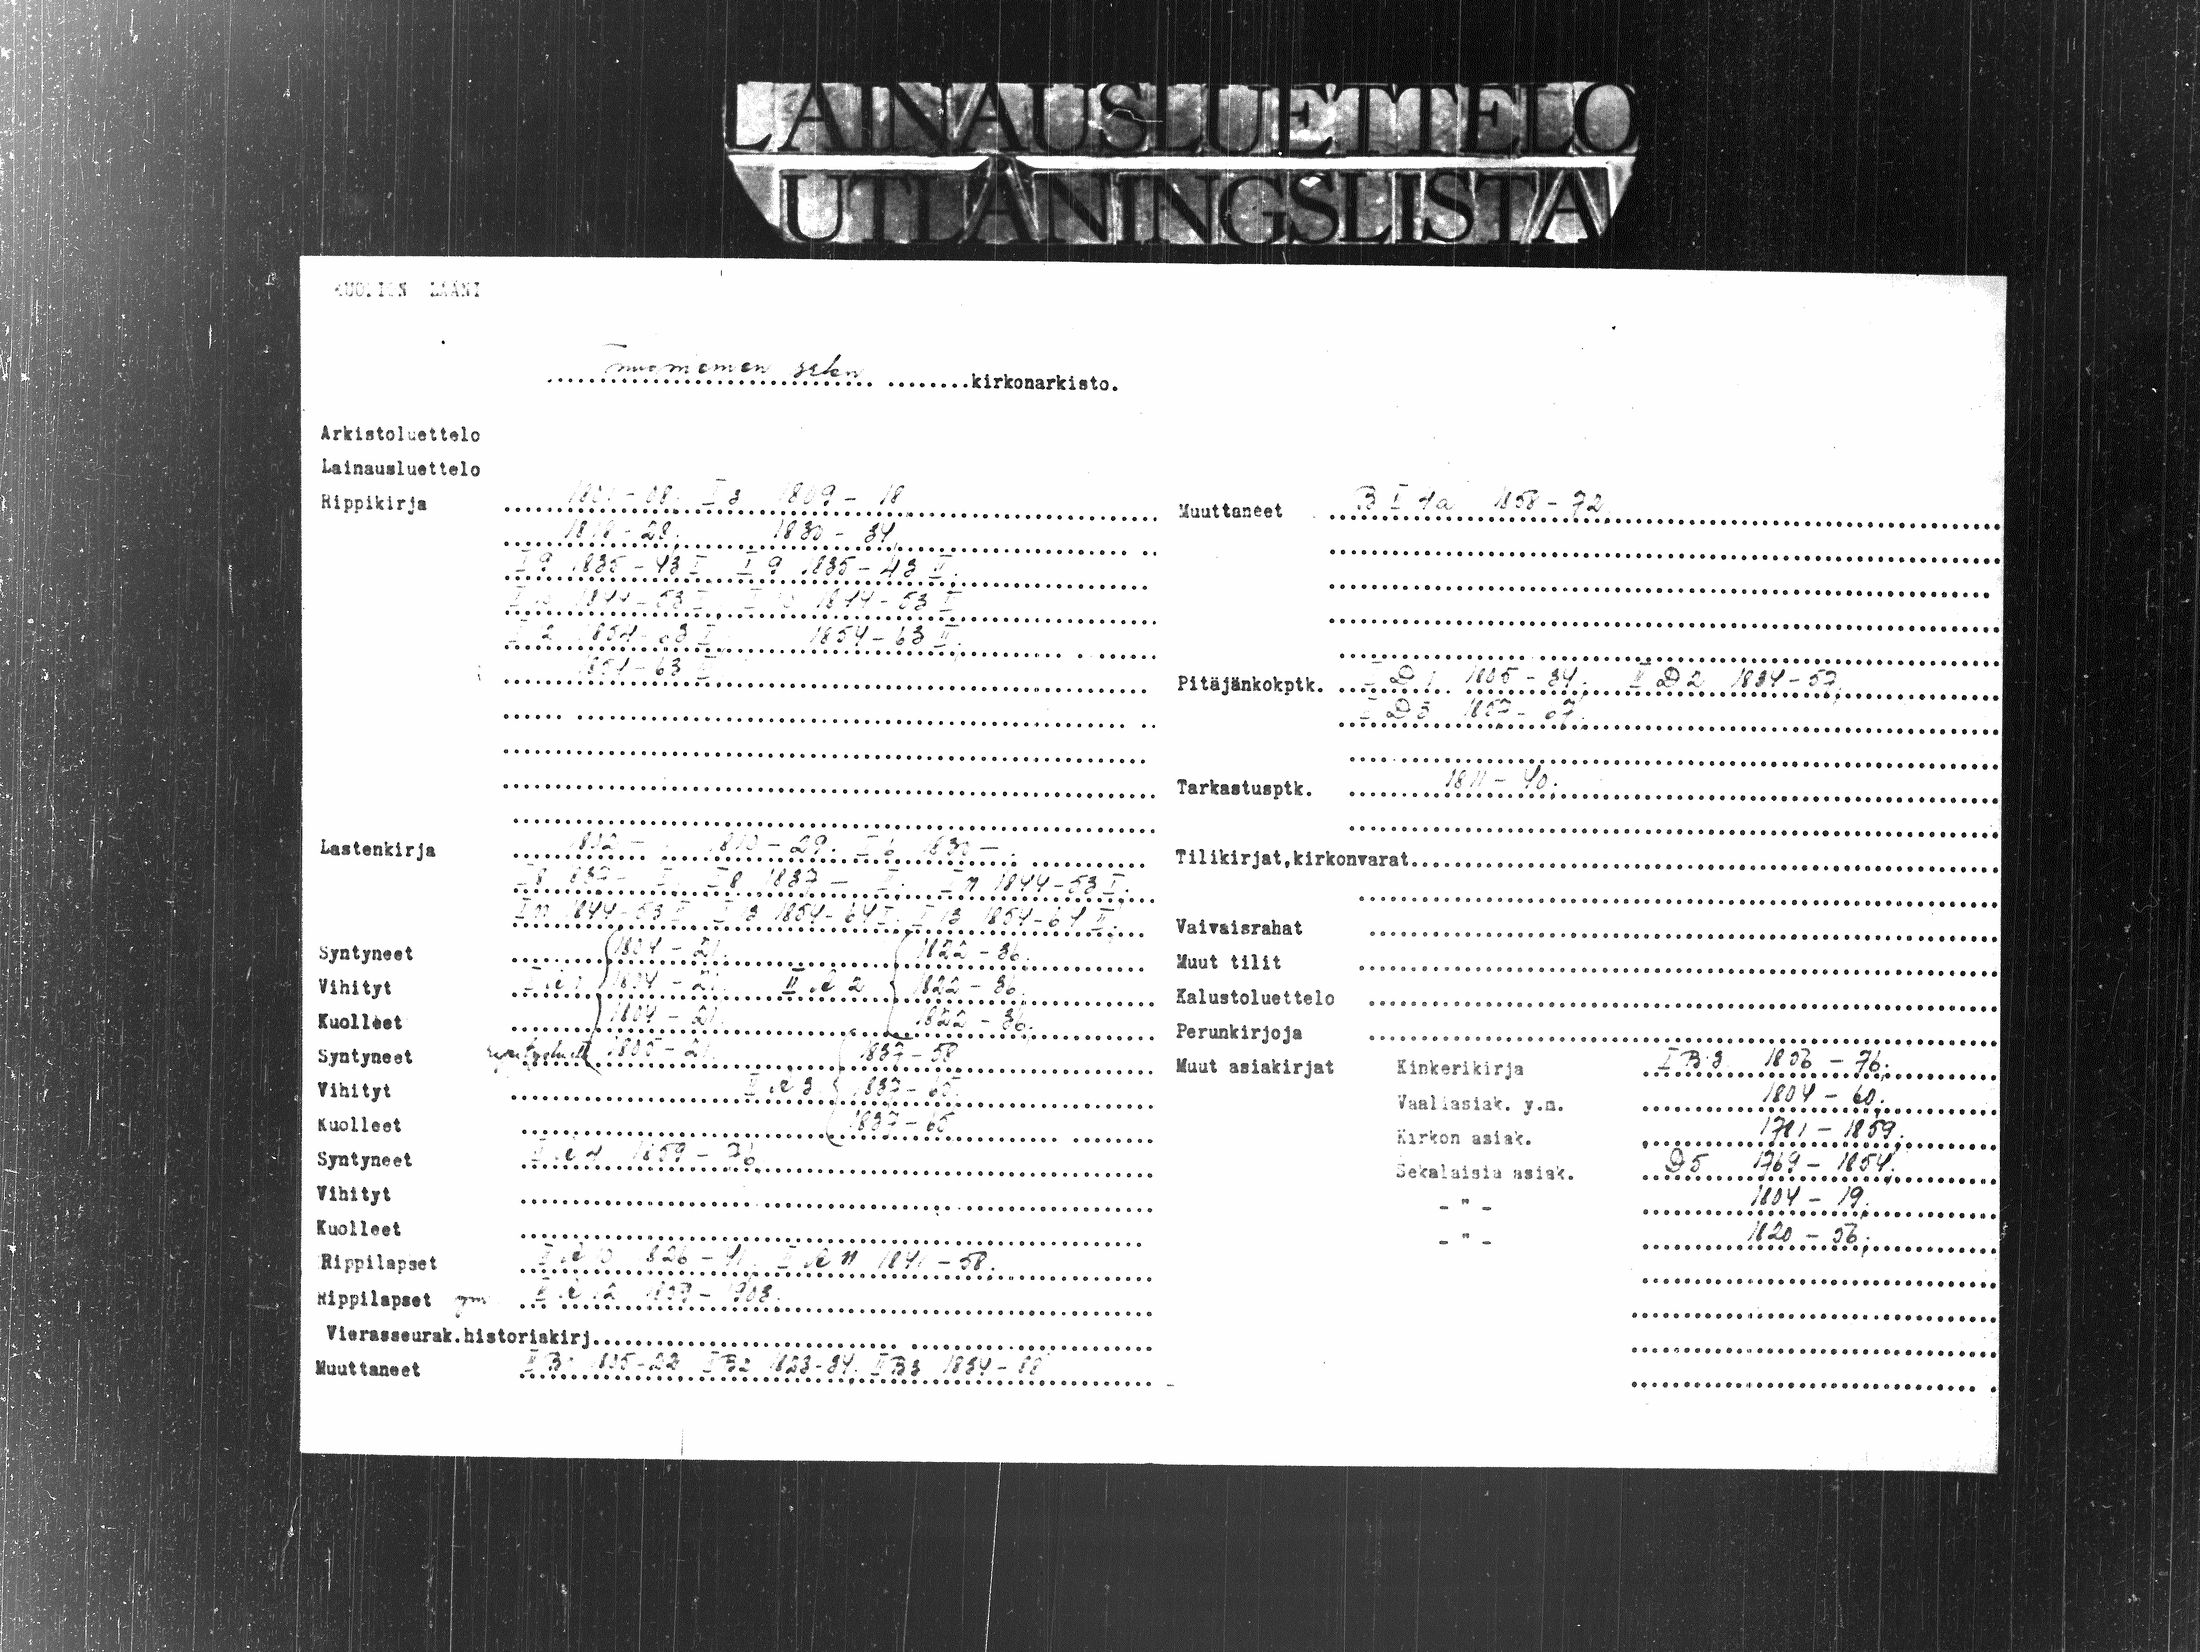 LAINAUSLUETTELO
UTLÅNINGSLISTA
KUOPION LÄÄNI
Tuusniemen srkn kirkonarkisto.
Arkistoluettelo
Lainausluettelo
Rippikirja - 08; I 3 1809 - 18
1818 - 28; 1830 - 34,
I 9 1835 - 43 I I 9 1835 - 43 II.
1844 - 53 I 1844 - 53 II
1854 - 63 I 1854 - 63 II.
1854 - 63
Lastenkirja 1802 - 1810 - 29. I 6 1830 -
I 8 1837 - I. I 8 1837 - II. I 11 1844 - 53 I.
I 11 1844 - 53 II I 13 1854 - 64 I. I 13 1854 - 64 II.
Syntyneet 1804 - 21. 1822 - 36.
Vihityt 1804 - 21. 1822 - 36.
Kuolleet 1804 - 21. 1822 - 36.
Syntyneet 1805 - 21. 1837 - 58
Vihityt 1837 - 65.
Kuolleet 1837 - 65
Syntyneet 1859 - 76
Vihityt
Kuolleet
Rippilapset 1826 - 41. 1841 - 58.
Rippilapset ym - 1908.
Vierasseurak.historiakirj.
Muuttaneet II B 1 1805 - 22 II B 2 1823 - 34. II B 3 1834 - 88
Muuttaneet B I 4a 1858 - 72,
Pitäjänkokptk. II D 1 1805 - 34; II D 2 1834 - 57,
II D 3 1857 - 67.
Tarkastusptk. 1811 - 40.
Tilikirjat,kirkonvarat
Vaivaisrahat
Muut tilit
Kalustoluettelo
Perunkirjoja
Muut asiakirjat Kinkerikirja I B 3 1856 - 76;
Vaaliasiak. y.m. 1804 - 60.
Kirkon asiak. 1781 - 1859;
Sekalaisia asiak. D 5 1769 - 1854.
- " - 1804 - 19;
- " - 1820 - 56;